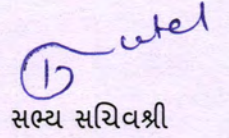 સભ્ય સચિવશ્રી